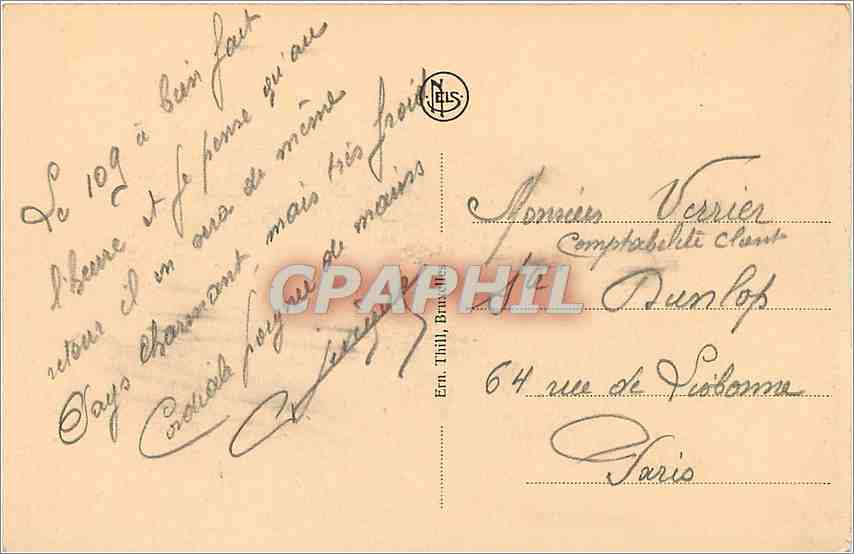 Le 109 à bien fait
l'heure et je pense qu'au
retour il en sera de même
Pays charmant, mais très froid
Cordiale poignée de mains
NELS
Ern. Thill, Bruxelles
CPAPHIL
Monsieur Verrier
Comptabilité Client
Sté Dunlop
64 rue de Lisbonne
Paris